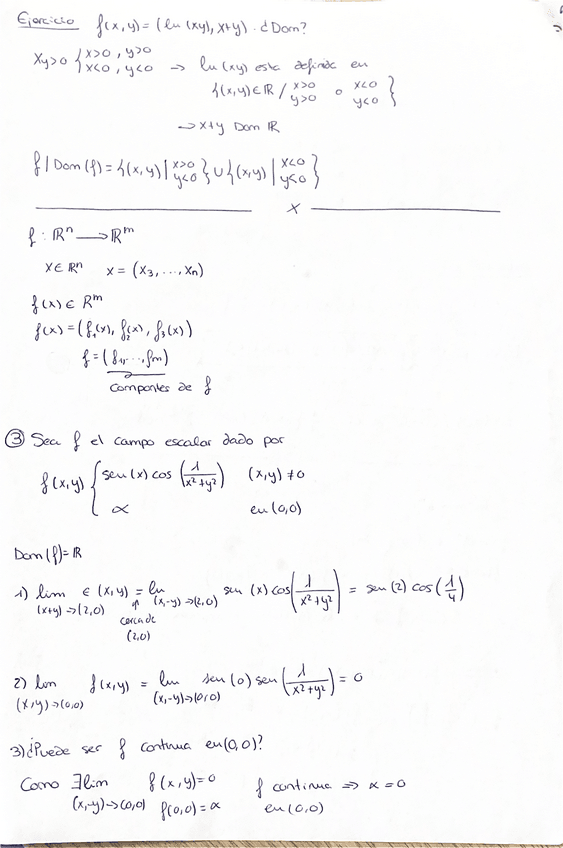 Ejercicio f(x,y) = (ln(xy), x+y). ¿Dom?
xy>0 { x>0, y>0
x<0, y<0 → ln(xy) esta definida en
{(x,y)∈ℝ / x>0 y>0 o x<0 y<0 }
→ x+y Dom ℝ
f | Dom(f) = {(x,y) | x>0 y<0 } ∪ {(x,y) | x<0 y≤0 }
x
f : ℝⁿ → ℝᵐ
x∈ℝⁿ x = (x₃,...,xₙ)
f(x) ∈ Rᵐ
f(x) = (f₁(x), f₂(x), f₃(x))
f = (f₁,...,fm)
Compontes de f
③ Sea f el campo escalar dado por
f(x,y) { sen(x) cos (1/(x²+y²)) (x,y) ≠0
α en (0,0)
Dom(f) = ℝ
1) lim ∈ (x,y) = lim sen(x) cos(1/(x²+y²)) = sen(2) cos(1/4)
(x+y)→(2,0) ↑ (x,-y)→(2,0)
cerca de
(2,0)
2) lim f(x,y) = lim sen(0) sen(1/(x²+y²)) = 0
(x,y)→(0,0) (x,-y)→(0,0)
3) ¿Puede ser f continua en (0,0)?
Como ∃lim f(x,y)=0 f continua ⇒ α=0
(x,-y)→(0,0) f(0,0)=α en (0,0)